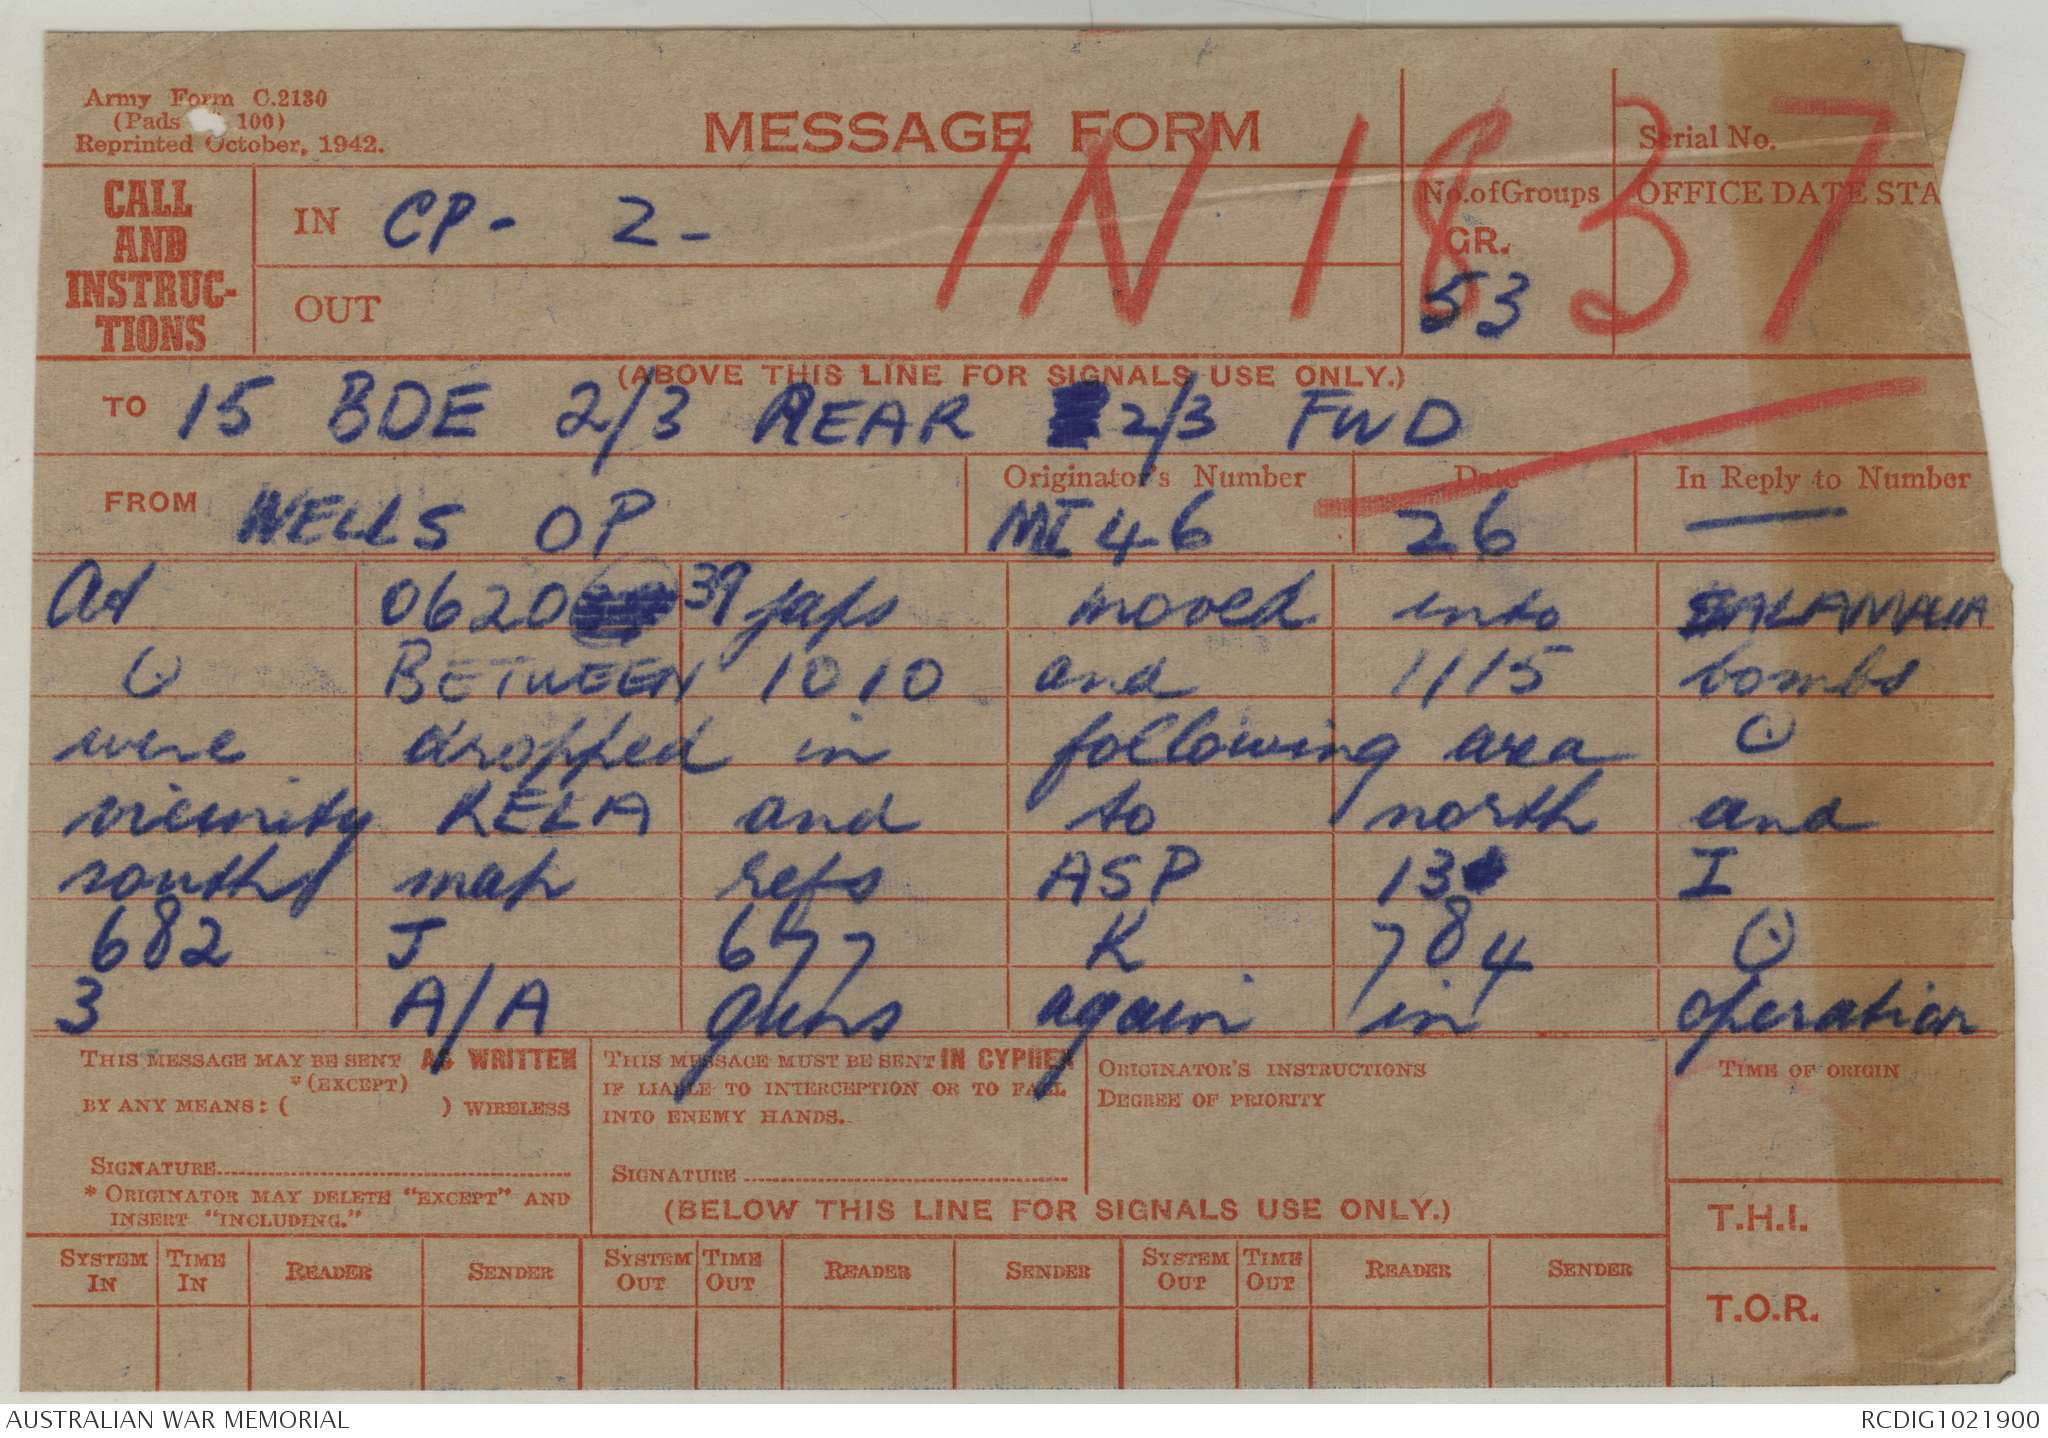 Army Form C.2130
(Pads 100)
Reprinted October, 1942.
MESSAGE FORM
Serial No.
IN 1837
CALL
AND
INSTRUC-
TIONS
IN CP - 2 -
OUT
No. of Groups
GR.
53
OFFICE DATE STA
(ABOVE THIS LINE FOR SIGNALS USE ONLY.)
TO 15 BDE 2/3 REAR 2/3 FWD
FROM WELLS OP
Originator's Number
MI 46
Date
26
In Reply to Number
—
At 0620 39 japs moved into SALAMAUA
(.) BETWEEN 1010 and 1115 bombs
were dropped in following area (.)
vicinity KELA and to north and
south map refs ASP 13 I
682 J 677 K 784 (.)
3 A/A guns again in operation
THIS MESSAGE MAY BE SENT AS WRITTEN
*(EXCEPT)
BY ANY MEANS: ( ) WIRELESS
SIGNATURE
* ORIGINATOR MAY DELETE "EXCEPT" AND
INSERT "INCLUDING."
THIS MESSAGE MUST BE SENT IN CYPHER
IF LIABLE TO INTERCEPTION OR TO FALL
INTO ENEMY HANDS.
SIGNATURE
ORIGINATOR'S INSTRUCTIONS
DEGREE OF PRIORITY
TIME OF ORIGIN
(BELOW THIS LINE FOR SIGNALS USE ONLY.)
T.H.I.
T.O.R.
SYSTEM IN TIME IN READER SENDER SYSTEM OUT TIME OUT READER SENDER SYSTEM OUT TIME OUT READER SENDER
AUSTRALIAN WAR MEMORIAL RCDIG1021900